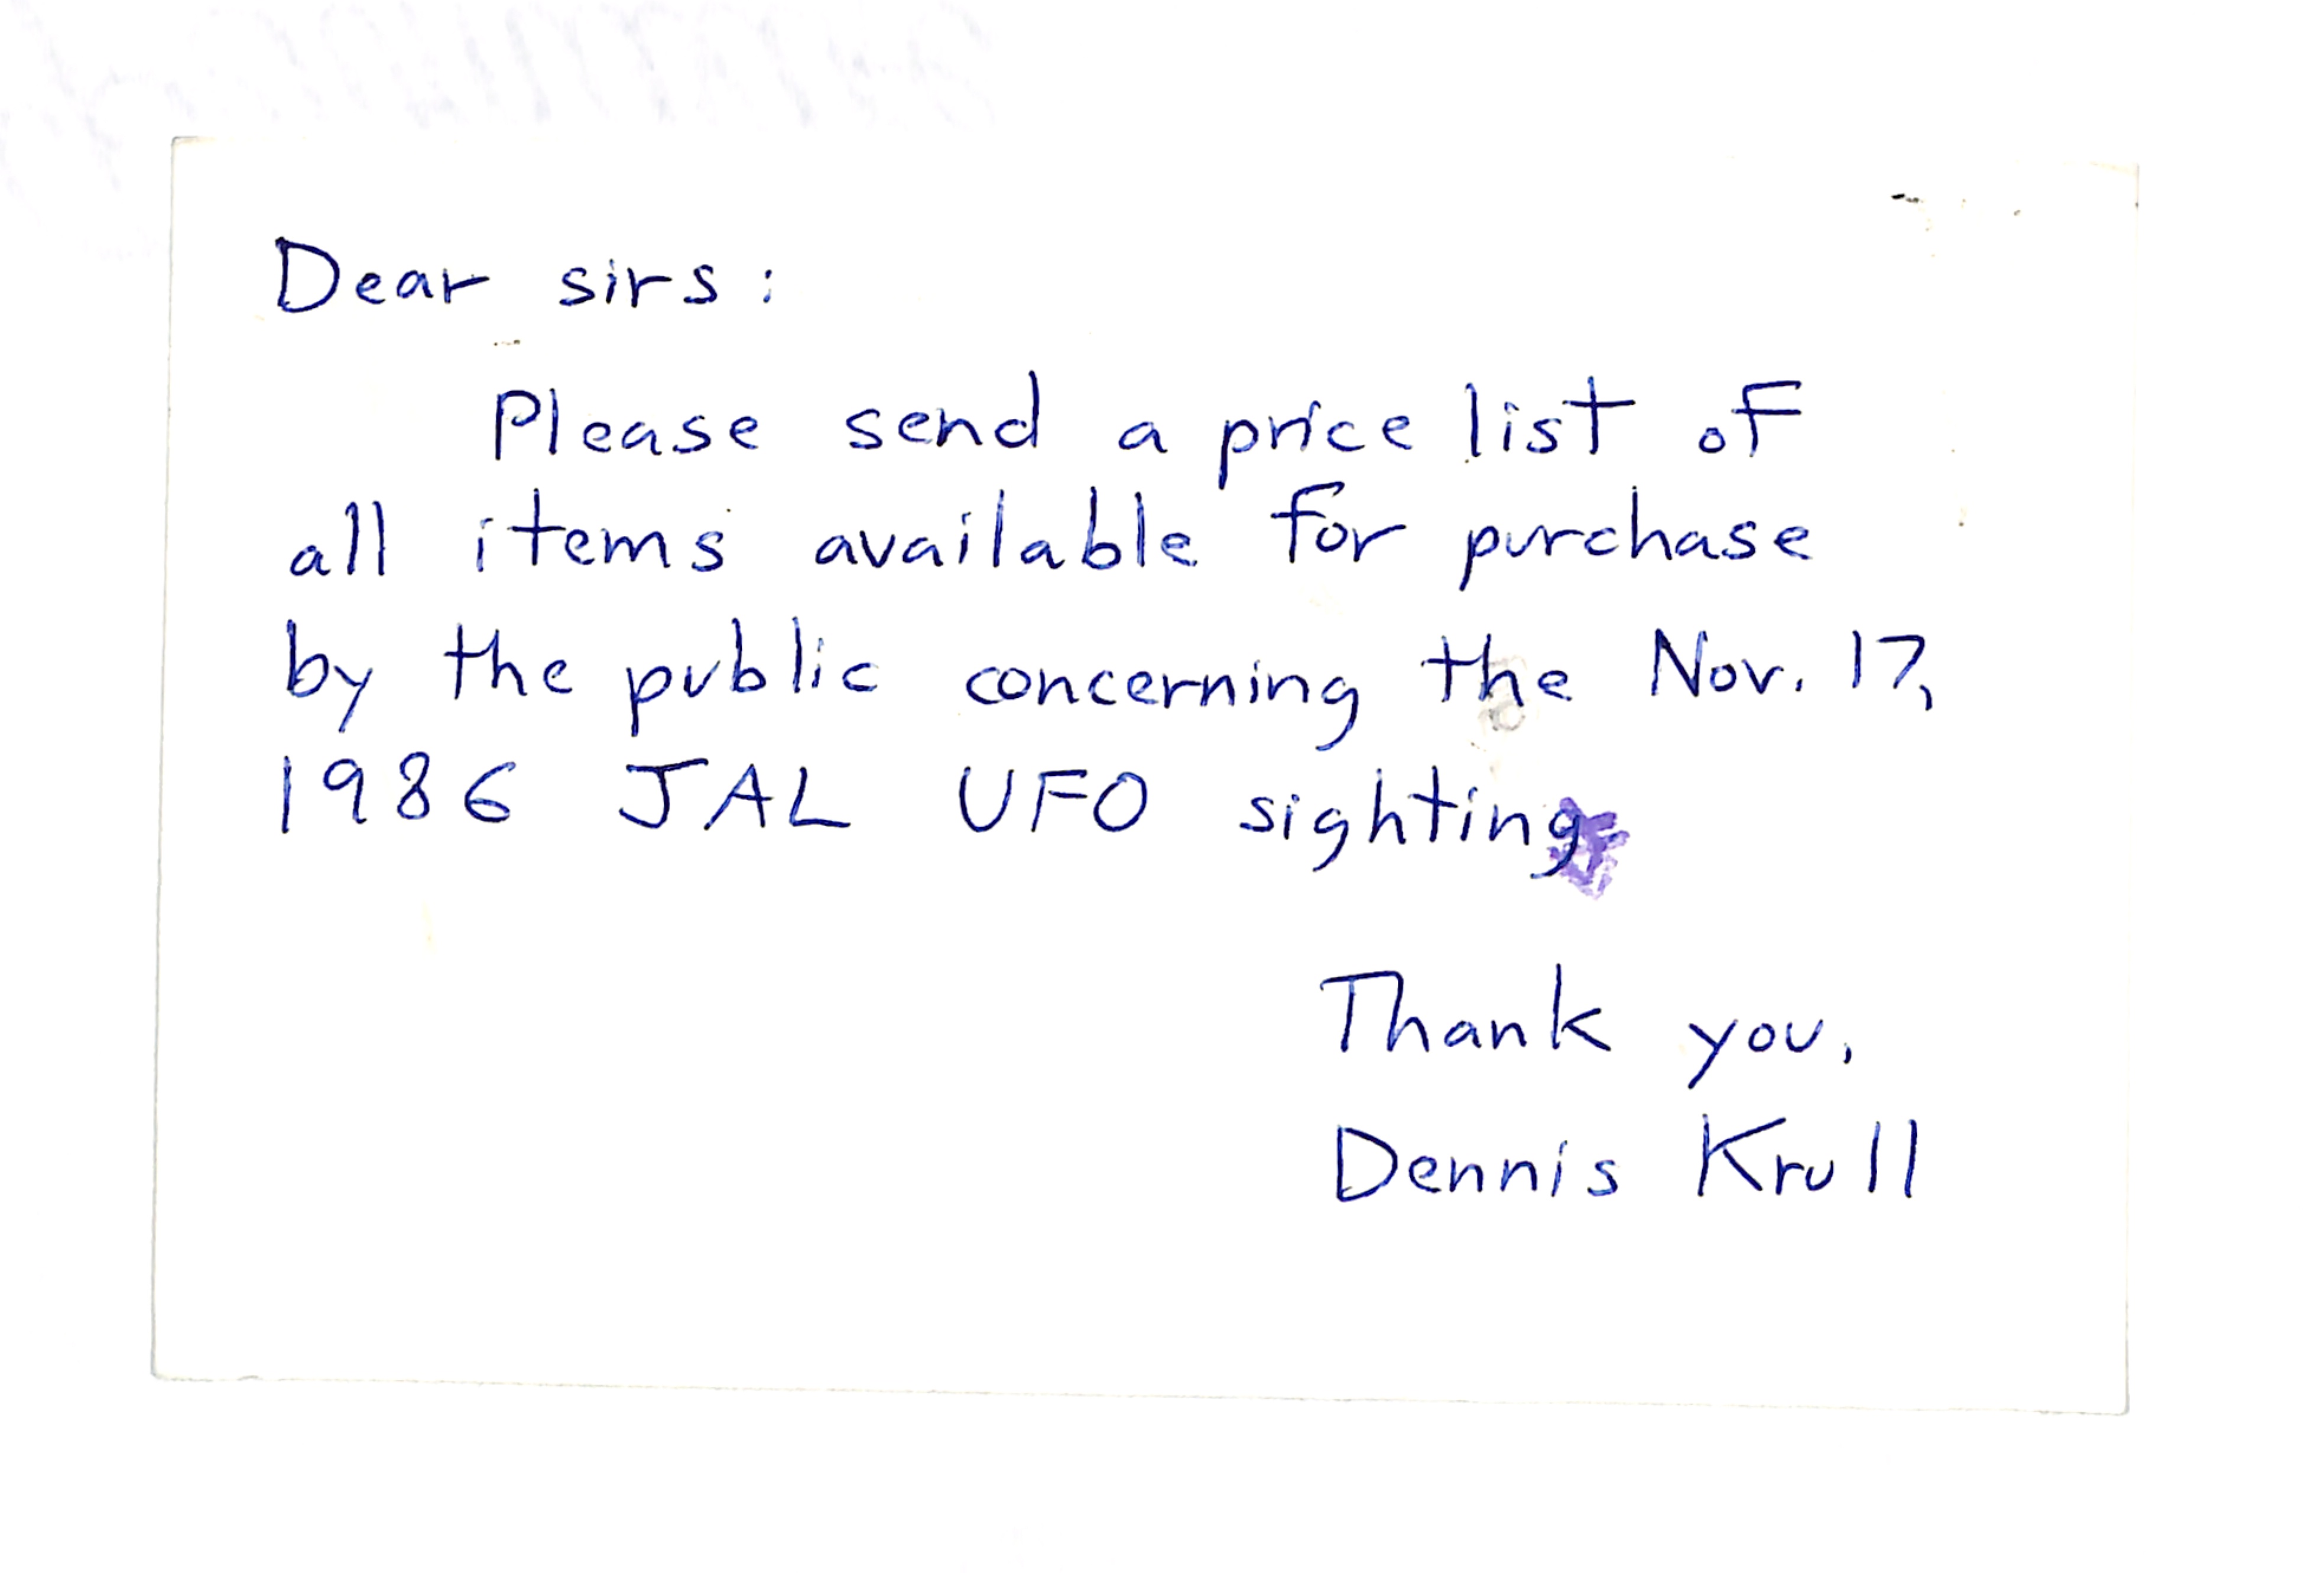 Dear sirs:
Please send a price list of
all items available for purchase
by the public concerning the Nov. 17,
1986 JAL UFO sighting.
Thank you,
Dennis Krull